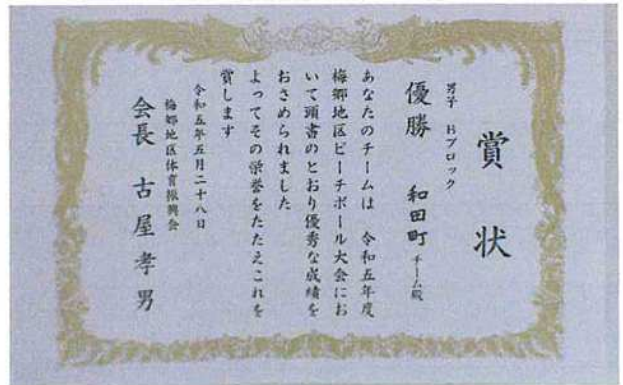 賞状
男子 Bブロック
優勝 和田町チーム殿
あなたのチームは 令和五年度
梅郷地区ビーチボール大会にお
いて頭書のとおり優秀な成績を
おさめられました
よってその栄誉をたたえこれを
賞します
令和五年五月二十八日
梅郷地区体育振興会
会長 古屋孝男